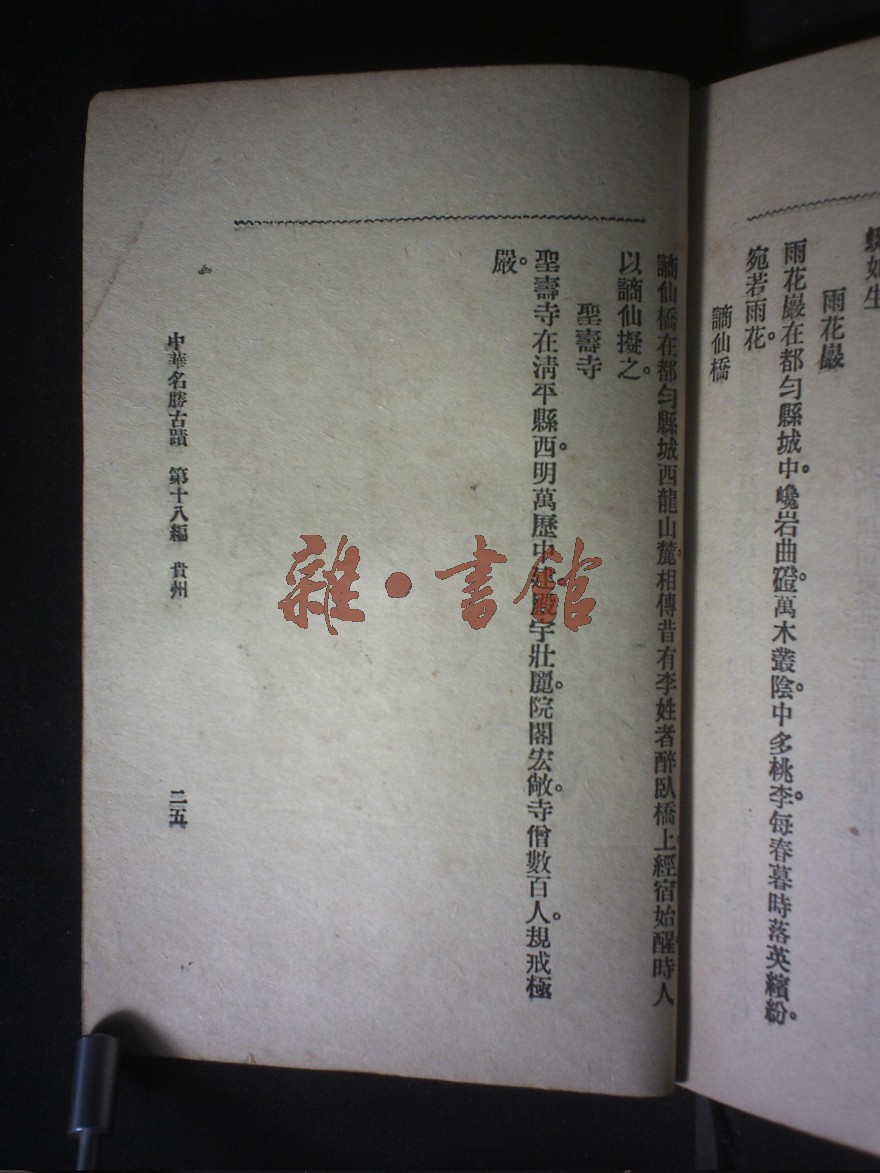 雨花巖
雨花巖在都勻縣城中。巉岩曲磴。萬木叢陰。中多桃李。每春暮時落英繽紛。
宛若雨花。
謫仙橋
謫仙橋在都勻縣城西龍山麓。相傳昔有李姓者醉臥橋上。經宿始醒。時人
以謫仙擬之。
聖壽寺
聖壽寺在淸平縣西。明萬歷中建。殿宇壯麗。院閣宏敞。寺僧數百人。規戒極
嚴。
中華名勝古蹟 第十八編 貴州
二五
雜·書館